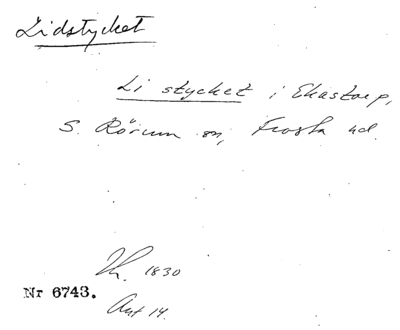 Lidstycket
Li stycket i Ekastorp,
S. Rörum sn, Frosta hd.
1830
Nr 6743.
Akt 14.